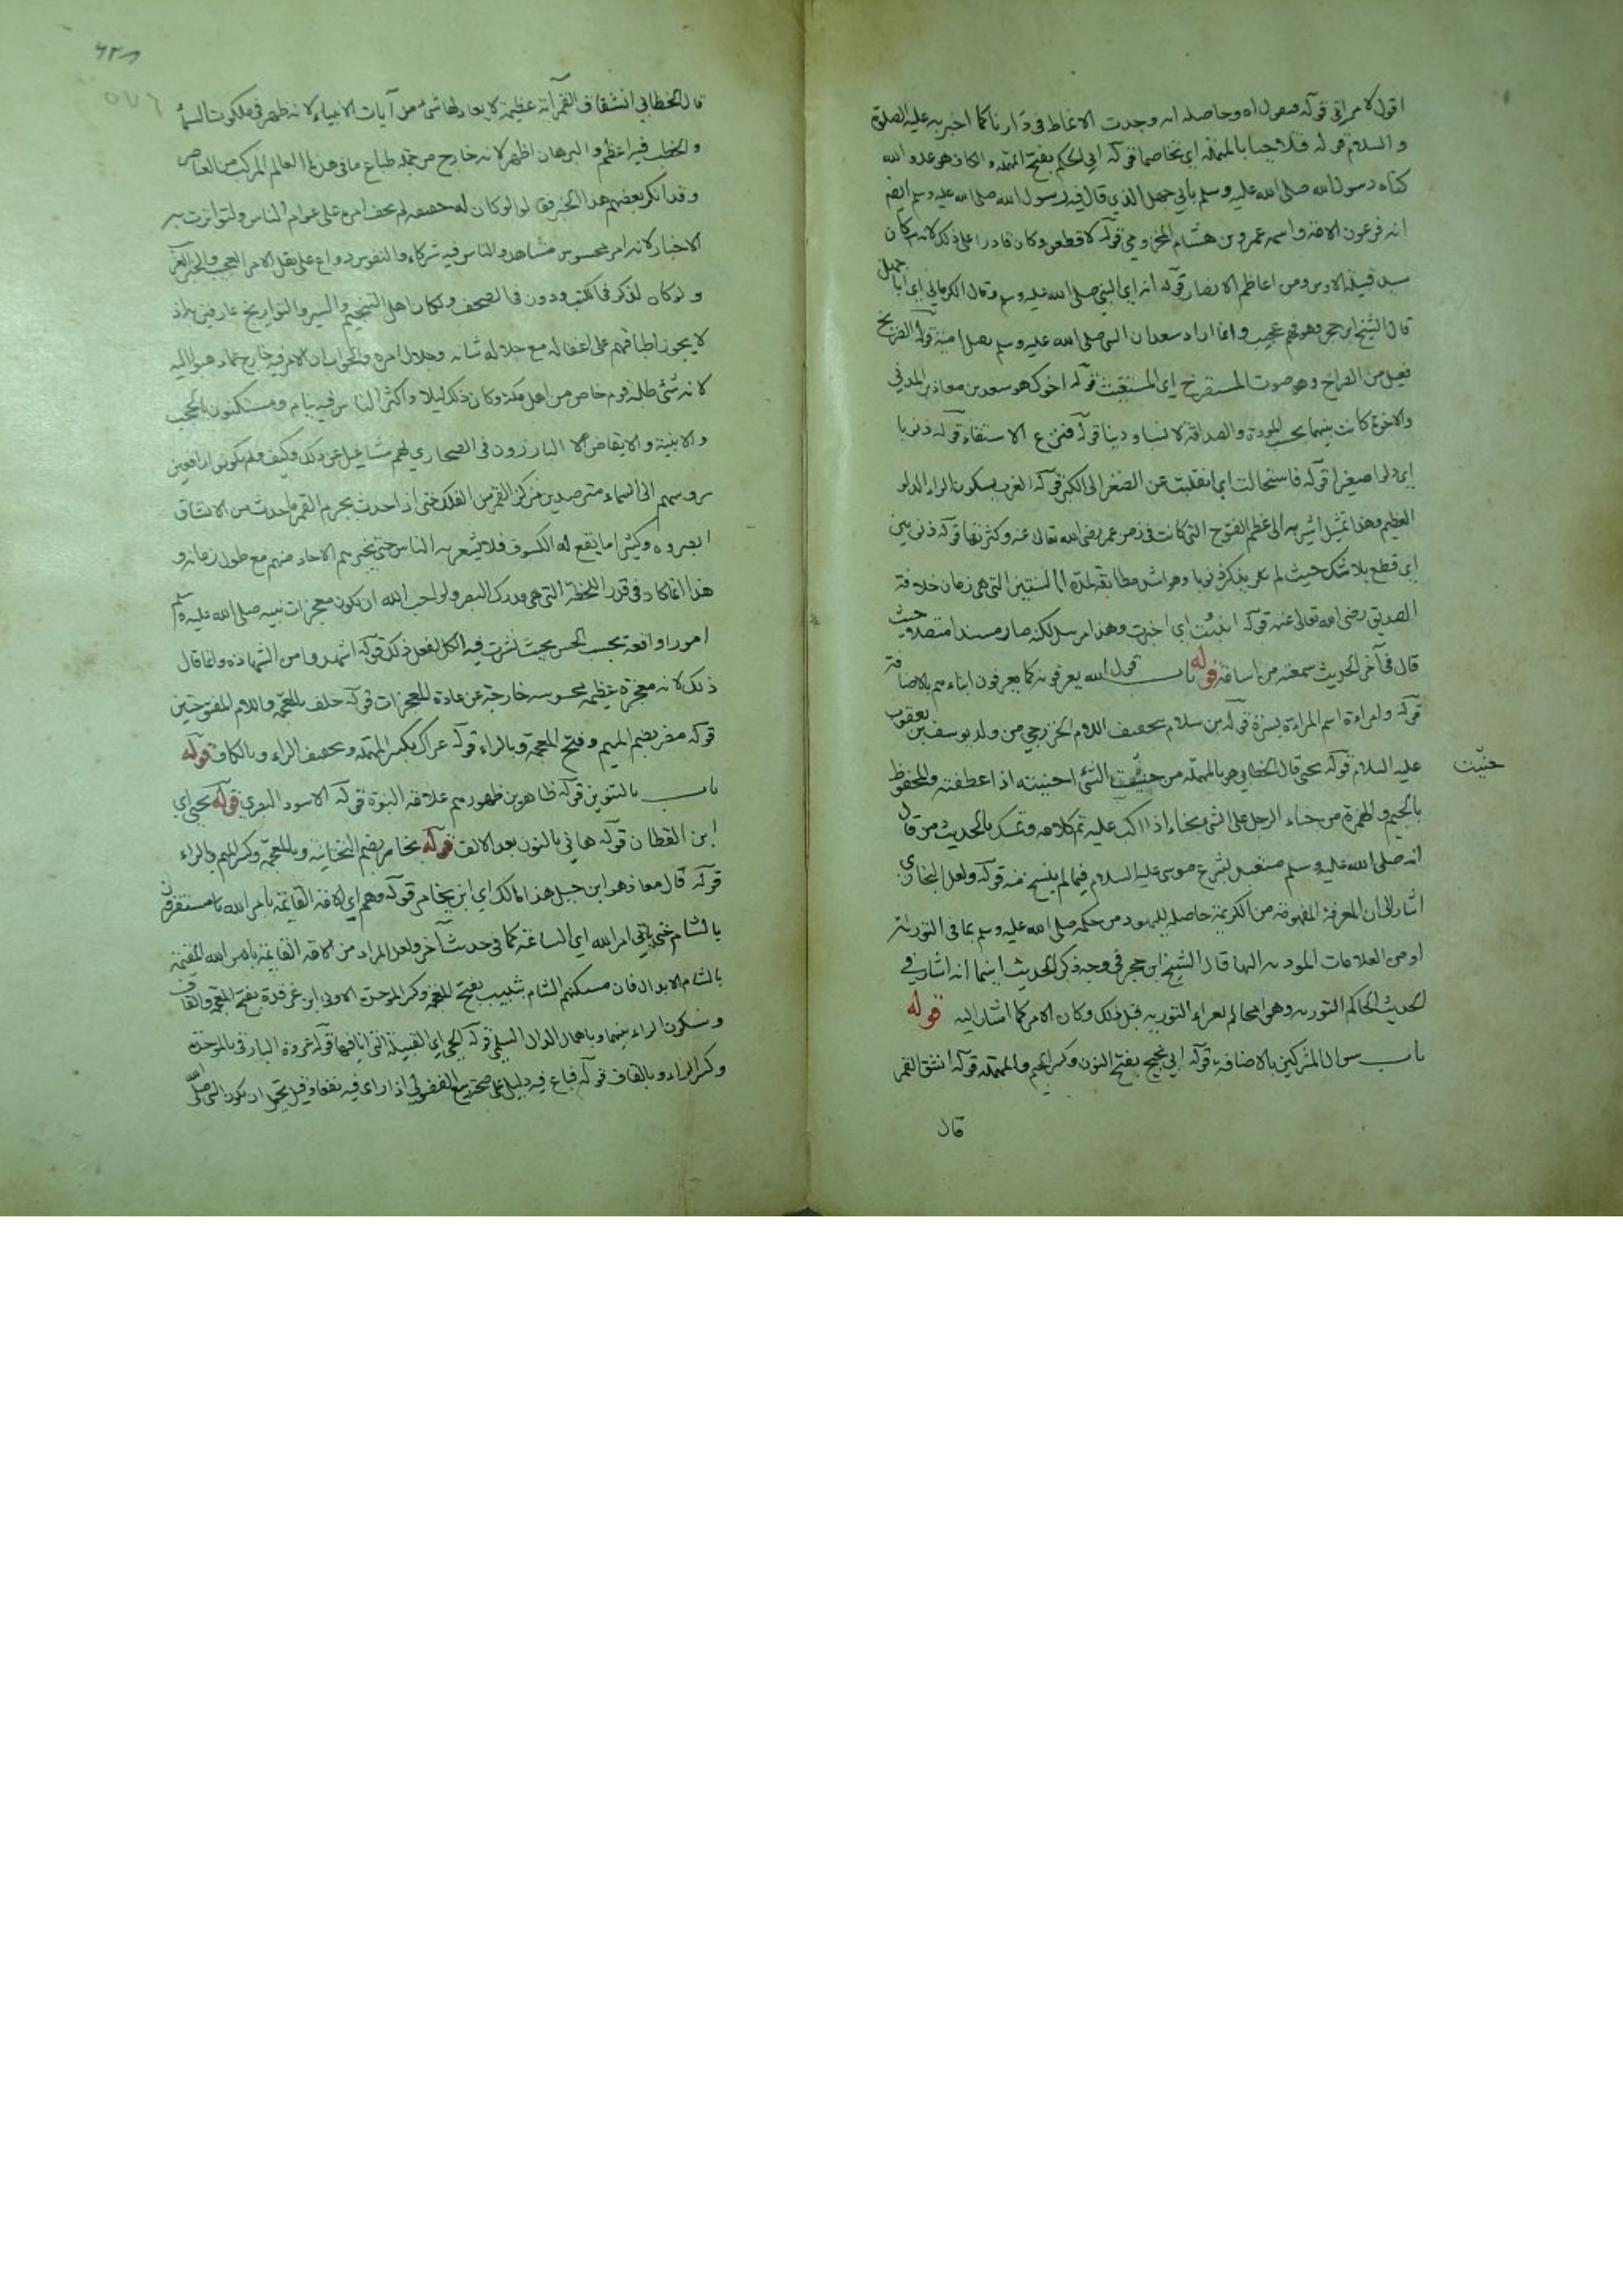 اقول لامراتي قوله فنقول اه وحاصله انه وجدت الانماط في دارنا كما اخبر به عليه الصلوة
والسلام قوله فتلاحيا بالمهملة اي تخاصما قوله ابي الحكم بفتح المهملة والكاف هو عدو الله
كناه رسول الله صلى الله عليه وسلم بابي جهل الذي قال فيه رسول الله صلى الله عليه وسلم ايضا
انه فرعون الامة واسمه عمرو بن هشام المخزومي قوله لاقطعن وكان قادرا على ذلك لانه كان
سيد قبيلة الاوس ومن اعاظم الانصار قوله انه اي النبي صلى الله عليه وسلم وقال الكرماني اي ابا جهل
قال الشيخ ابن حجر وهو فهم عجيب وانما اراد سعد ان النبي صلى الله عليه وسلم يقتل امية قوله الصريخ
فعيل من الصراخ وهو صوت المستصرخ اي المستغيث قوله اخوك هو سعد بن معاذ المدني
والاخوة كانت بينهما بحسب المودة والصداقة لا نسبا ودينا قوله فنزع الاستقاء قوله ذنوبا
اي دلوا صغيرا قوله فاستحالت اي انقلبت عن الصغر الى الكبر قوله الغرب بسكون الراء الدلو
العظيم وهذا تمثيل اشير به الى عظم الفتوح التي كانت في زمن عمر رضي الله تعالى عنه وكثرتها قوله ذنوبين
اي قطع بلا شك حيث لم يذكر ذنوبا وهو اشد مطابقة لمدة السنتين التي هي زمان خلافة
الصديق رضي الله تعالى عنه قوله انبئت اي اخبرت وهذا مرسل لكنه صار مسندا متصلا حيث
قال في آخر الحديث سمعته من اسامة قوله باب قول الله يعرفونه كما يعرفون ابناءهم بالاضافة
قوله وامراءة اسم المراءة بسرة قوله بن سلام بتخفيف اللام الخزرجي من ولد يوسف بن يعقوب
عليه السلام قوله يحني قال الخطابي هو بالمهملة من حنيت الشئ احنيته اذا عطفته والمحفوظ
حنيت
بالجيم والهمزة من جناء الرجل على الشئ يجناء اذا اكب عليه تم كلامه وتمسك بالحديث من قال
انه صلى الله عليه وسلم متعبد بشرع موسى عليه السلام فيما لم ينسخ منه قوله ولعل البخاري
اشار الى ان المعرفة المفهومة من الكريمة حاصلة لليهود من حكمه صلى الله عليه وسلم بما في التورات
او من العلامات المودية اليها قال الشيخ ابن حجر في وجه ذكر الحديث اينما انه اشار في
الحديث الى حكم التورية وهو امي لم يقراء التورية قبل ذلك وكان الامر كما اشار اليه قوله
باب سوال المشركين بالاضافة قوله ابي نجيح بفتح النون وكسر الجيم والمهملة قوله انشق القمر
قال
قال الخطابي انشقاق القمر آية عظيمة لا يعادلها شئ من آيات الانبياء لانه ظهر في ملكوت السماء
والخطب فيه اعظم والبرهان اظهر لانه خارج من جملة طباع ما في هذا العالم المركب من العناصر
وقد انكر بعضهم هذا الخبر فقالوا لو كان له حقيقة لم يخف امره على عوام الناس ولتواترت به
الاخبار لانه امر محسوس مشاهد والناس فيه شركاء والنفوس دواع على نقل الامر العجيب والخبر الغريب
ولو كان لذكر في الكتب ودون في الصحف ولكان اهل التنجيم والسير والتواريخ عارفين به اذ
لا يجوز اطباقهم على اغفاله مع جلالة شانه وجلال امره والجواب ان الامر فيه خارج عما ذهبوا اليه
لانه شئ طلبه قوم خاص من اهل مكة وكان ذلك ليلا واكثر الناس فيه نيام ومستكنون بالحجب
والابنية والايقاض البارزون في الصحاري لهم مشاغل عن ذلك وكيف ولم يكونوا رافعين
رؤوسهم الى السماء مترصدين مركز القمر من الفلك حتى اذا حدث بجرم القمر ما حدث من الانشقاق
ابصروه وكثيرا ما يقع له الكسوف فلا يشعر به الناس حتى يخبرهم الآحاد منهم مع طول زمانه و
هذا انما كان في قدر اللحظة التي هي مدرك البصر ولو احب الله ان يكون معجزات نبيه صلى الله عليه وسلم
امورا واقعة بحسب الحس بحيث اشترك فيه الكل لفعل ذلك قوله اشهدوا من الشهادة وانما قال
ذلك لانه معجزة عظيمة محسوسة خارجة عن عادة المعجزات قوله خلف بالمعجمة واللام المفتوحتين
قوله مضر بضم الميم وفتح المعجمة وبالراء قوله عراك بكسر المهملة وتخفيف الراء وبالكاف قوله
باب بالتنوين قوله ظاهرين ظهورهم علامة النبوة قوله الاسود البصري قوله يحيى اي
ابن القطان قوله هاني بالنون بعد الالف قوله يخامر بضم التحتانية وبالمعجمة وكسر الميم وبالراء
قوله قال معاذ هو ابن جبل هذا مالك اي ابن يخامر قوله وهم اي الامة القايمة بامر الله مستقرون
بالشام حتى ياتي امر الله اي الساعة كما في حديث آخر ولعل المراد من الامة القايمة بامر الله المقيمة
بالشام الابدال فان مسكنهم الشام شبيب بفتح المعجمة وكسر الموحدة الاولى ابن غرقدة بفتح المعجمة والقاف
وسكون الراء بينهما وباهمال الدال السلمي قوله الحي اي القبيلة التي انا فيها قوله عروة البارقي بالموحدة
وكسر الراء وبالقاف قوله فباع فيه دليل على صحة بيع الفضولي اذا راى فيه نفعا وقيل يحتمل ان يكون النبي صلى الله